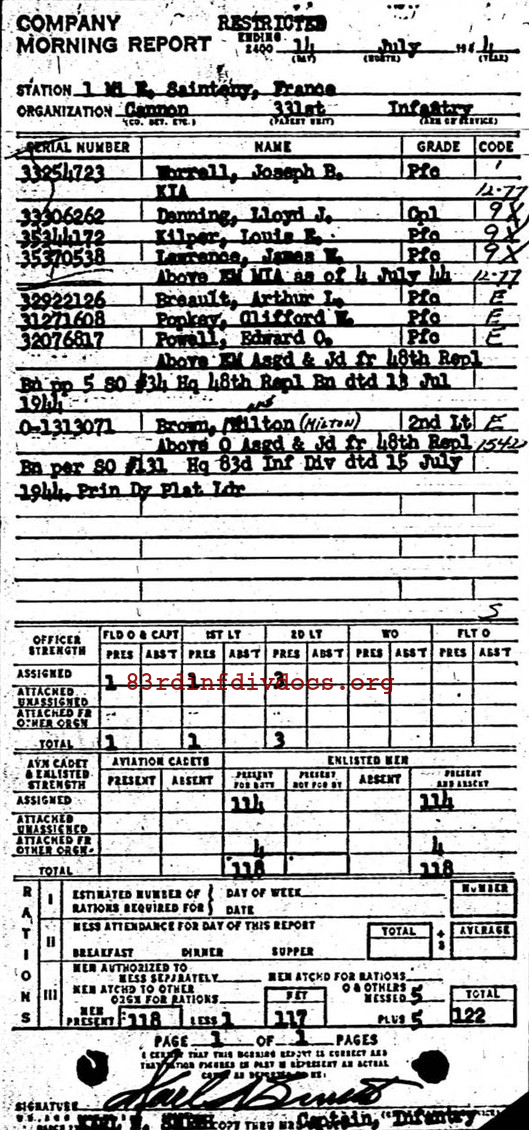 COMPANY RESTRICTED
MORNING REPORT ENDING 2400 14 July 194 4
(DAY) (MONTH) (YEAR)
STATION 1 Mi E. Sainteny, France
ORGANIZATION Cannon 331st Infantry
(CO. DET. ETC.) (PARENT UNIT) (ARM OF SERVICE)
SERIAL NUMBER NAME GRADE CODE
33254723 Worrell, Joseph B. Pfc
KIA 12-77
33306262 Denning, Lloyd J. Cpl 9X
35344172 Kilper, Louis E. Pfc 9X
35370538 Lawrence, James W. Pfc 9X
Above EM MIA as of 4 July 44 12-77
32922126 Breault, Arthur L. Pfc E
31271608 Popkey, Clifford W. Pfc E
32076817 Powell, Edward O. Pfc E
Above EM Asgd & Jd fr 48th Repl
Bn pp 5 SO #34 Hq 48th Repl Bn dtd 13 Jul
1944
O-1313071 Brown, Wilton (MILTON) 2nd Lt E
Above O Asgd & Jd fr 48th Repl 1542
Bn per SO #131 Hq 83d Inf Div dtd 15 July
1944. Prin Dy Plat Ldr
S
OFFICER STRENGTH FLD O & CAPT 1ST LT 2D LT WO FLT O
PRES ABS'T PRES ABS'T PRES ABS'T PRES ABS'T PRES ABS'T
ASSIGNED 1 1 3
83rdinfdivdocs.org
ATTACHED UNASSIGNED
ATTACHED FR OTHER ORGN
TOTAL 1 1 3
AVN CADET & ENLISTED STRENGTH AVIATION CADETS ENLISTED MEN
PRESENT ABSENT PRESENT FOR DUTY PRESENT NOT FOR DY ABSENT PRESENT AND ABSENT
ASSIGNED 114 114
ATTACHED UNASSIGNED
ATTACHED FR OTHER ORGN. 4 4
TOTAL 118 118
RATIONS
I ESTIMATED NUMBER OF RATIONS REQUIRED FOR { DAY OF WEEK DATE NUMBER
II MESS ATTENDANCE FOR DAY OF THIS REPORT TOTAL ÷ 3 AVERAGE
BREAKFAST DINNER SUPPER
III MEN AUTHORIZED TO MESS SEPARATELY MEN ATCHD FOR RATIONS
MEN ATCHD TO OTHER ORGN FOR RATIONS NET O & OTHERS MESSED 5 TOTAL
MEN PRESENT 118 LESS 1 117 PLUS 5 122
PAGE 1 OF 1 PAGES
I CERTIFY THAT THIS MORNING REPORT IS CORRECT AND
THAT RATION FIGURES IN PART III REPRESENT AN ACTUAL
COUNT AS REPORTED TO ME:
SIGNATURE
Captain, Infantry